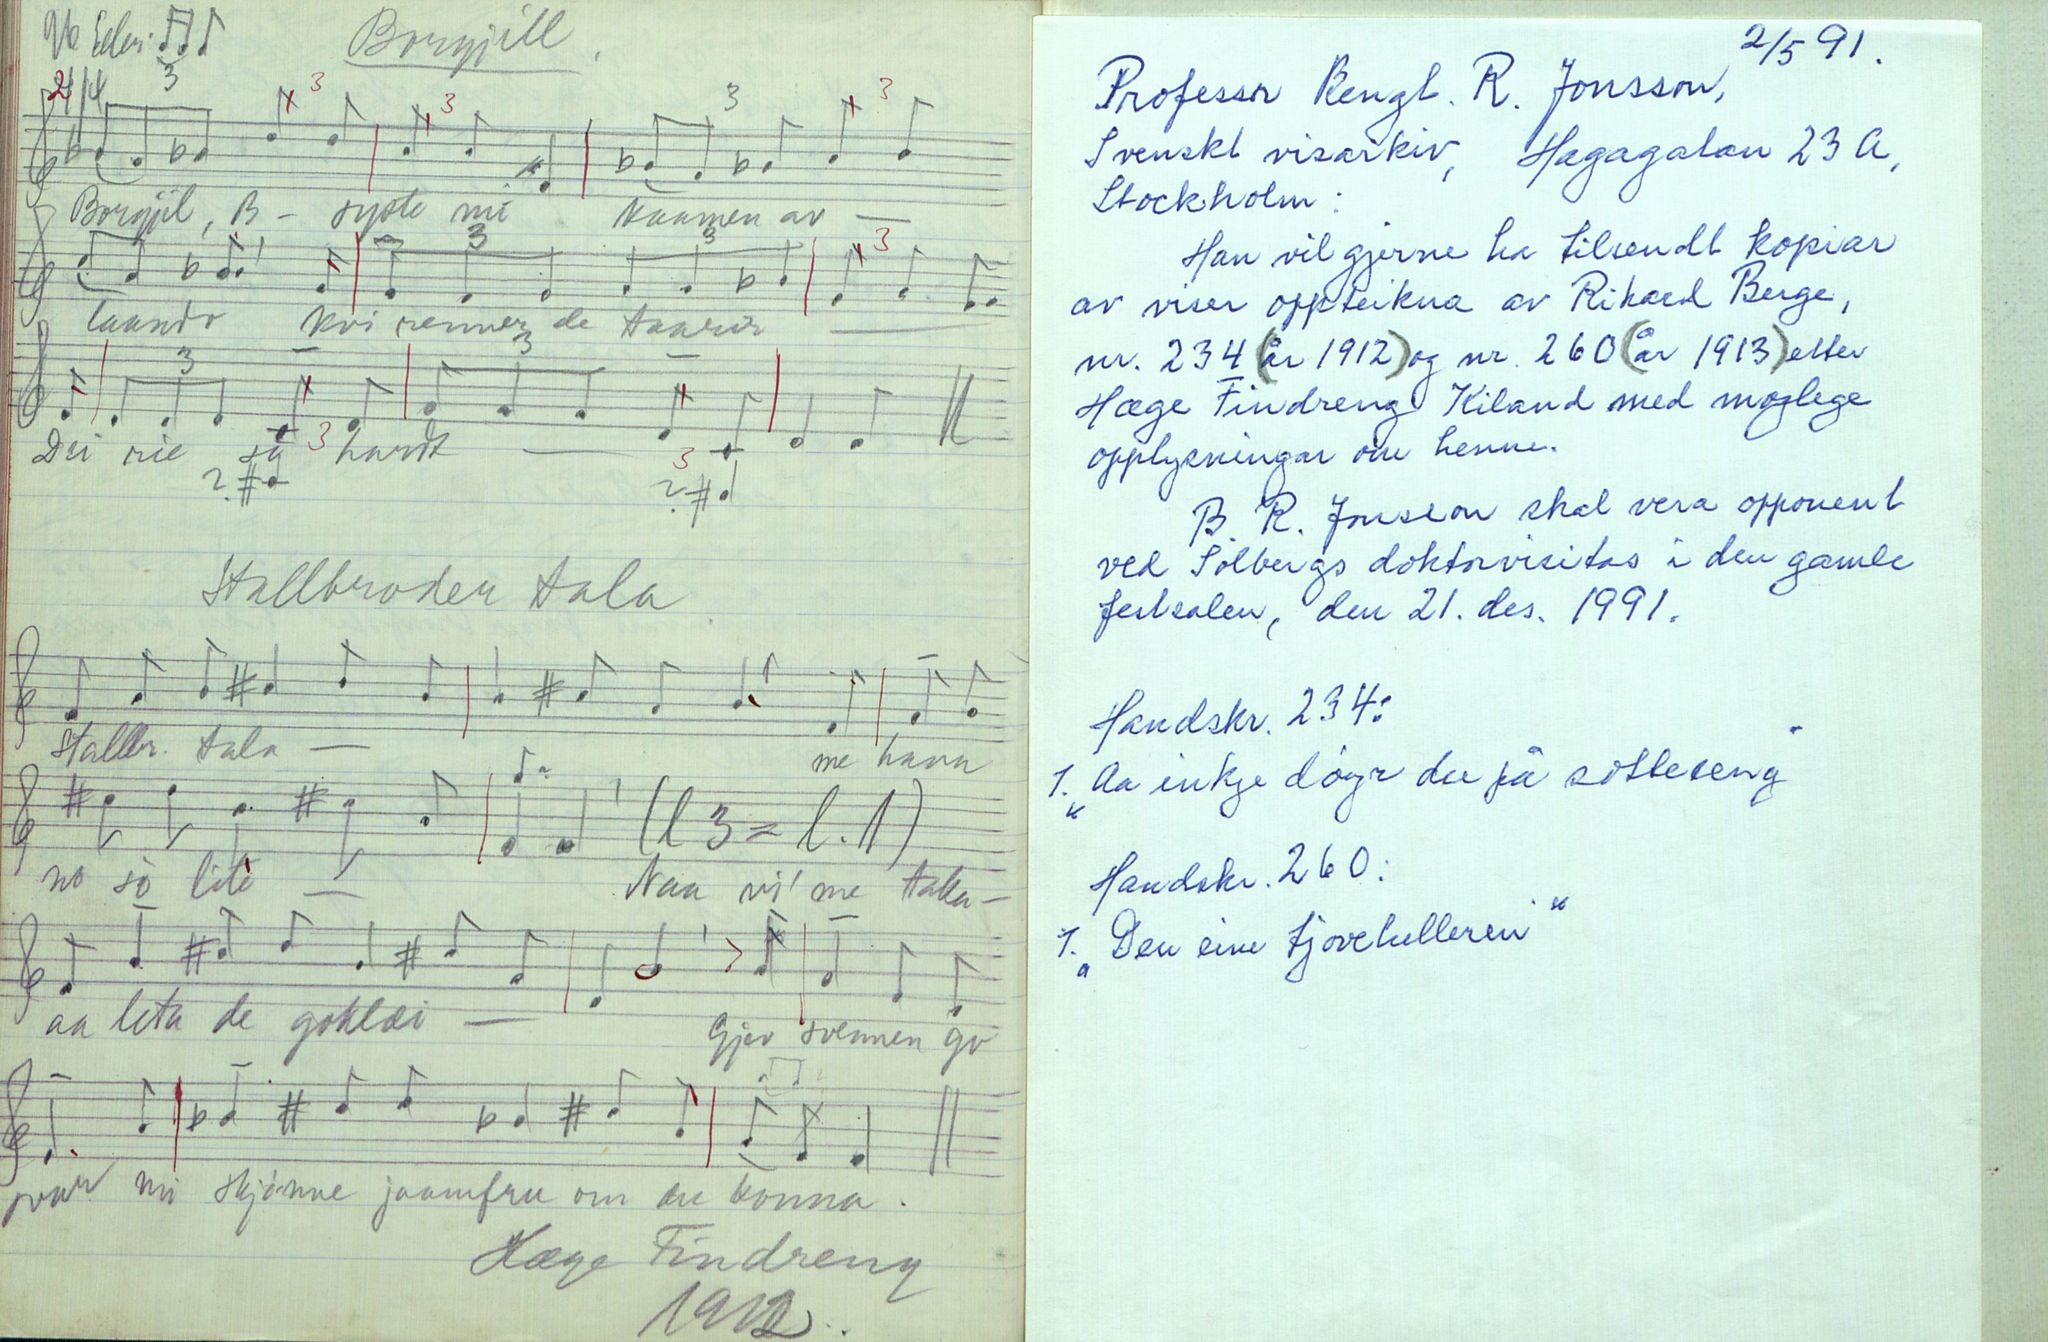 Borgjill.
Borgjil, B – syste mi Naamen av —
laando kvi renner de taarir —
Dei rie så hardt —
Stallbroder tala
Stallbr. tala — me hann
no so lite — (l 3 = l. 1) Naa vi' me taka –
aa leta de goklæi — Gjev svennen go
svar mi skjønne jaamfru om du konna.
Hæge Findreng
1912.
2/5 91.
Professor Bengt. R. Jonsson,
Svenskt visarkiv, Hagagatan 23 A,
Stockholm:
Han vil gjerne ha tilsendt kopiar
av viser oppteikna av Rikard Berge,
nr. 234 (år 1912) og nr. 260 (år 1913) etter
Hæge Findreng Kiland med moglege
opplysningar om henne.
B. R. Jonsson skal vera opponent
ved Sølbergs doktorvisitas i den gamle
festsalen, den 21. des. 1991.
Handskr. 234:
1. „Aa inkje døyr du på sotteseng"
Handskr. 260:
1. „Den eine tjovehelleren"